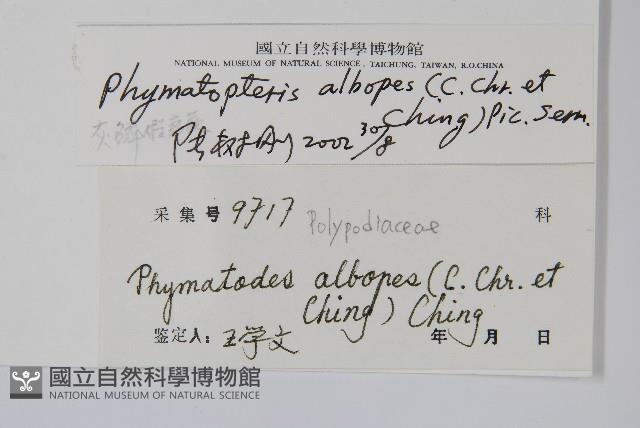 國立自然科學博物館
NATIONAL MUSEUM OF NATURAL SCIENCE, TAICHUNG, TAIWAN, R.O.CHINA
Phymatopteris albopes (C. Chr. et
Ching) Pic. Serm.
陆树刚 2002 30/8
采集号 9717 Polypodiaceae 科
Phymatodes albopes (C. Chr. et
Ching) Ching
鉴定人: 王学文 年 月 日
國立自然科學博物館
NATIONAL MUSEUM OF NATURAL SCIENCE